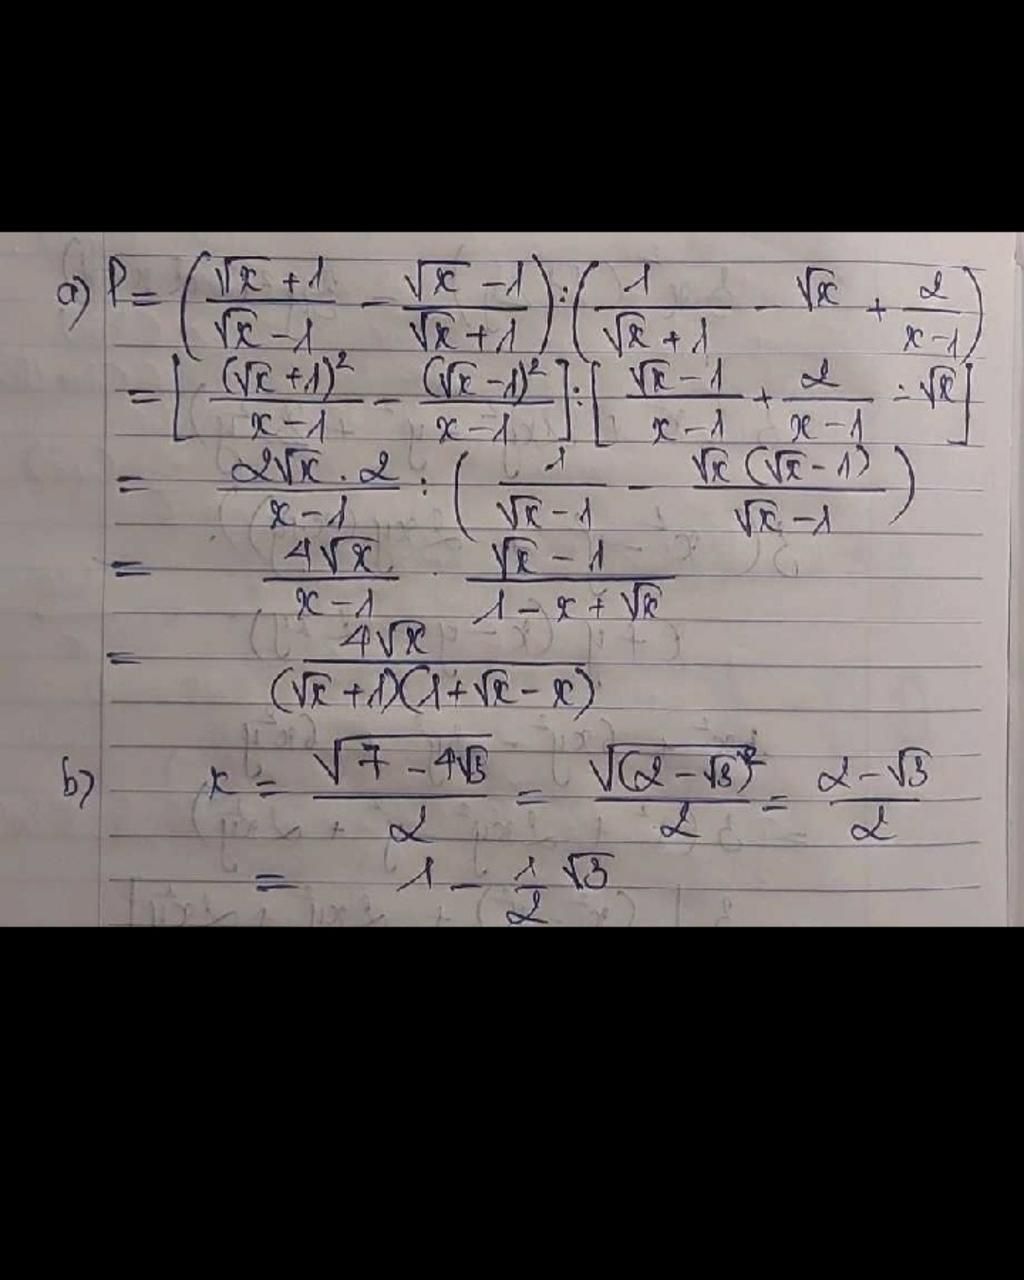 a) P = ((√x + 1)/(√x - 1) - (√x - 1)/(√x + 1)) : (1/(√x + 1) - √x + 2/(x - 1))
= [(√x + 1)²/(x - 1) - (√x - 1)²/(x - 1)] : [(√x - 1)/(x - 1) + 2/(x - 1) - √x]
= (2√x . 2)/(x - 1) : (1/(√x - 1) - √x(√x - 1)/(√x - 1))
= 4√x/(x - 1) . (√x - 1)/(1 - x + √x)
= 4√x/((√x + 1)(1 + √x - x))
b) x = √(7 - 4√3)/2 = √((2 - √3)²)/2 = (2 - √3)/2
= 1 - 1/2 √3